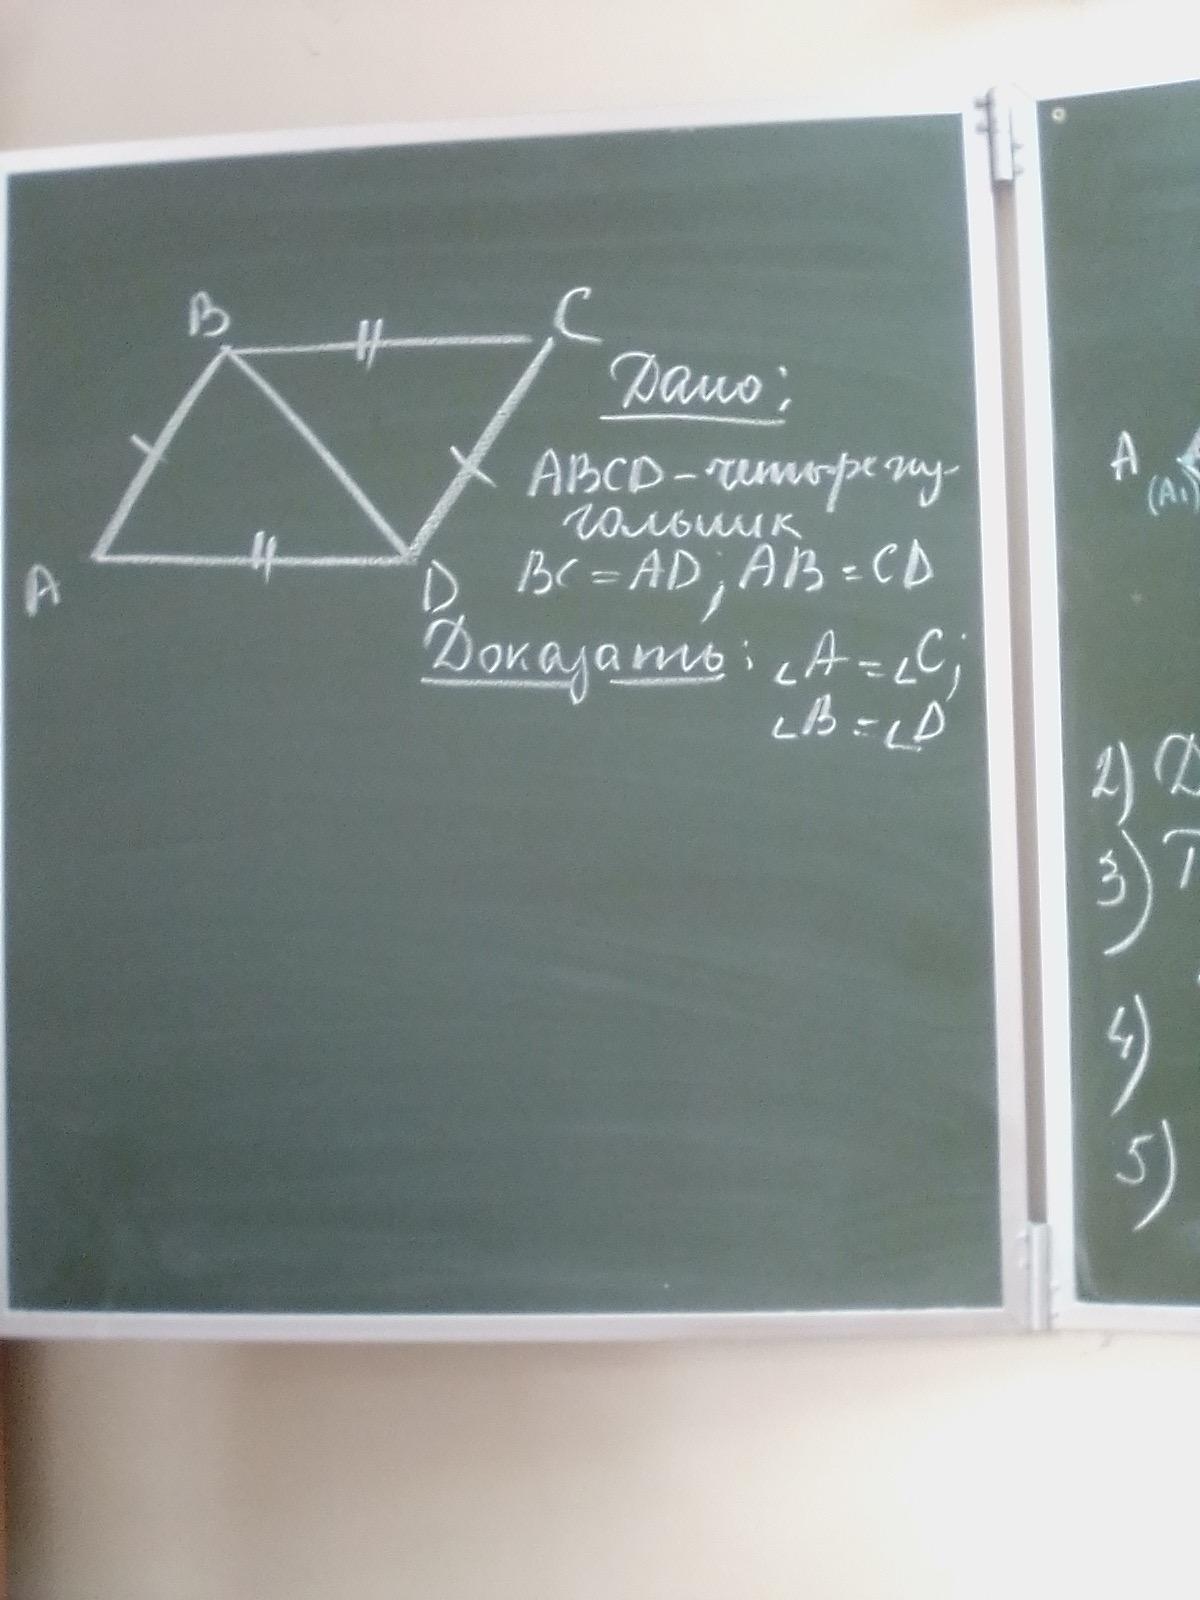 B
C
A
D
Дано:
ABCD - четырёху-
гольник
BC = AD; AB = CD
Доказать: ∠A = ∠C;
∠B = ∠D
A
(A1)
2) D
3) T
4)
5)